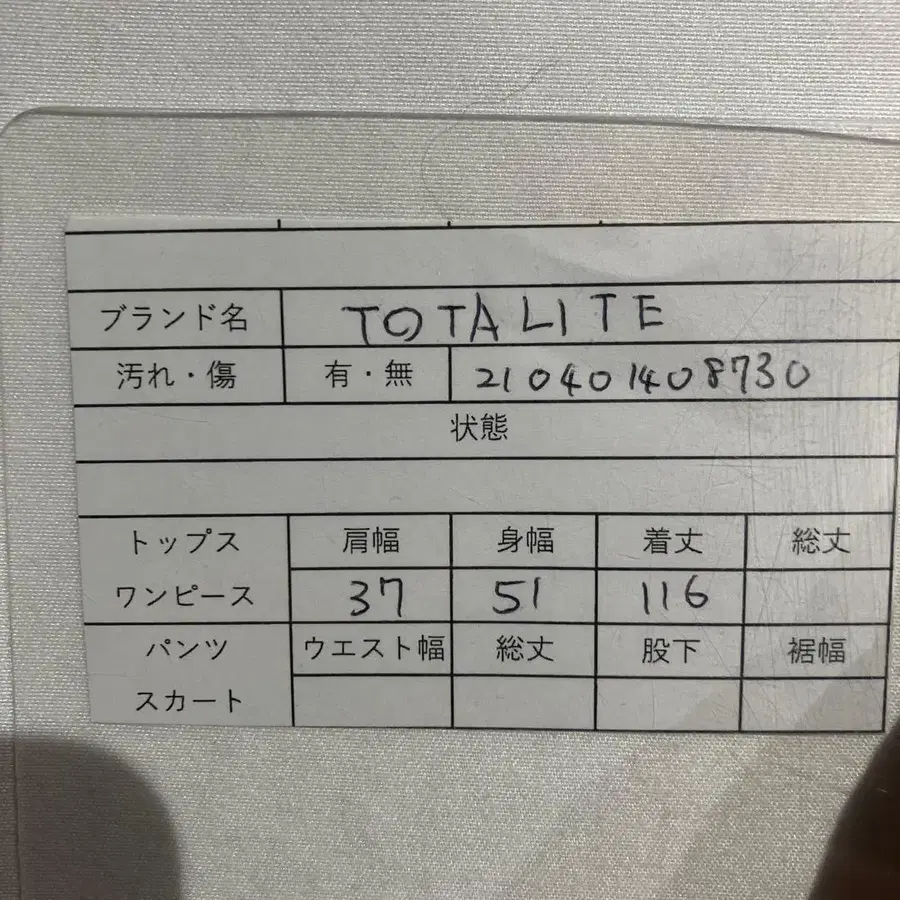 ブランド名 TOTALITE
汚れ・傷 有・無 210401408730
状態
トップス 肩幅 身幅 着丈 総丈
ワンピース 37 51 116
パンツ ウエスト幅 総丈 股下 裾幅
スカート